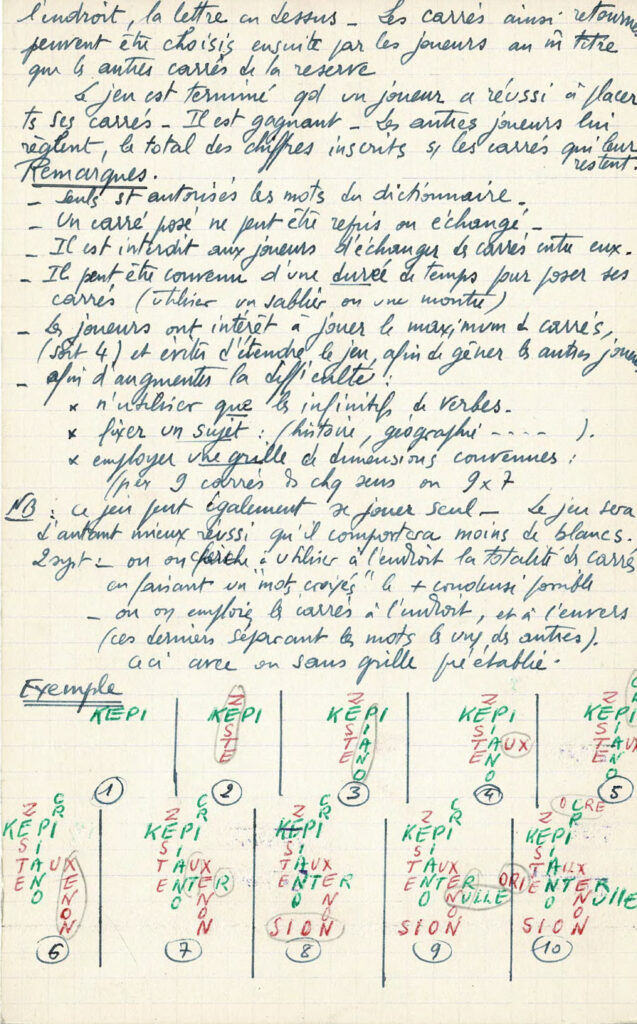 l'endroit, la lettre en dessus_ Les carrés ainsi retournés
peuvent être choisis ensuite par les joueurs au m̂ titre
que les autres carrés de la reserve
Le jeu est terminé qd un joueur a réussi à placer
ts ses carrés_ Il est gagnant_ Les autres joueurs lui
règlent, le total des chiffres inscrits s/ les carrés qui leur
restent.
Remarques.
_ Seuls st autorisés les mots du dictionnaire_
_ Un carré posé ne peut être repris ou échangé_
_ Il est interdit aux joueurs d'échanger des carrés entre eux.
_ Il peut être convenu d'une durée de temps pour poser ses
carrés (utiliser un sablier ou une montre)
_ Les joueurs ont intérêt à jouer le maximum de carrés,
(soit 4) et éviter d'étendre le jeu, afin de gêner les autres joueurs
_ afin d'augmenter la difficulté :
x n'utiliser que les infinitifs de verbes.
x fixer un sujet : (histoire, géographie ---- ).
x employer une grille de dimensions convenues :
(par ex 9 carrés ds chq sens ou 9x7
NB : ce jeu peut également se jouer seul_ Le jeu sera
d'autant mieux réussi qu'il comportera moins de blancs.
2 syst :_ ou on cherche à utiliser à l'endroit la totalité des carrés
en faisant un "mots croisés" le + condensé possible
_ ou on emploie les carrés à l'endroit, et à l'envers
(ces derniers séparant les mots les uns des autres).
ceci avec ou sans grille préétablie.
Exemple
KEPI
1
ZESTE
KEPI
2
ZESTE
KEPI
PIANO
3
ZESTE
KEPI
PIANO
AUX
4
KEPI
5
OCRE
6
XENON
7
ENTER
8
SION
9
NULLE
10
ORI